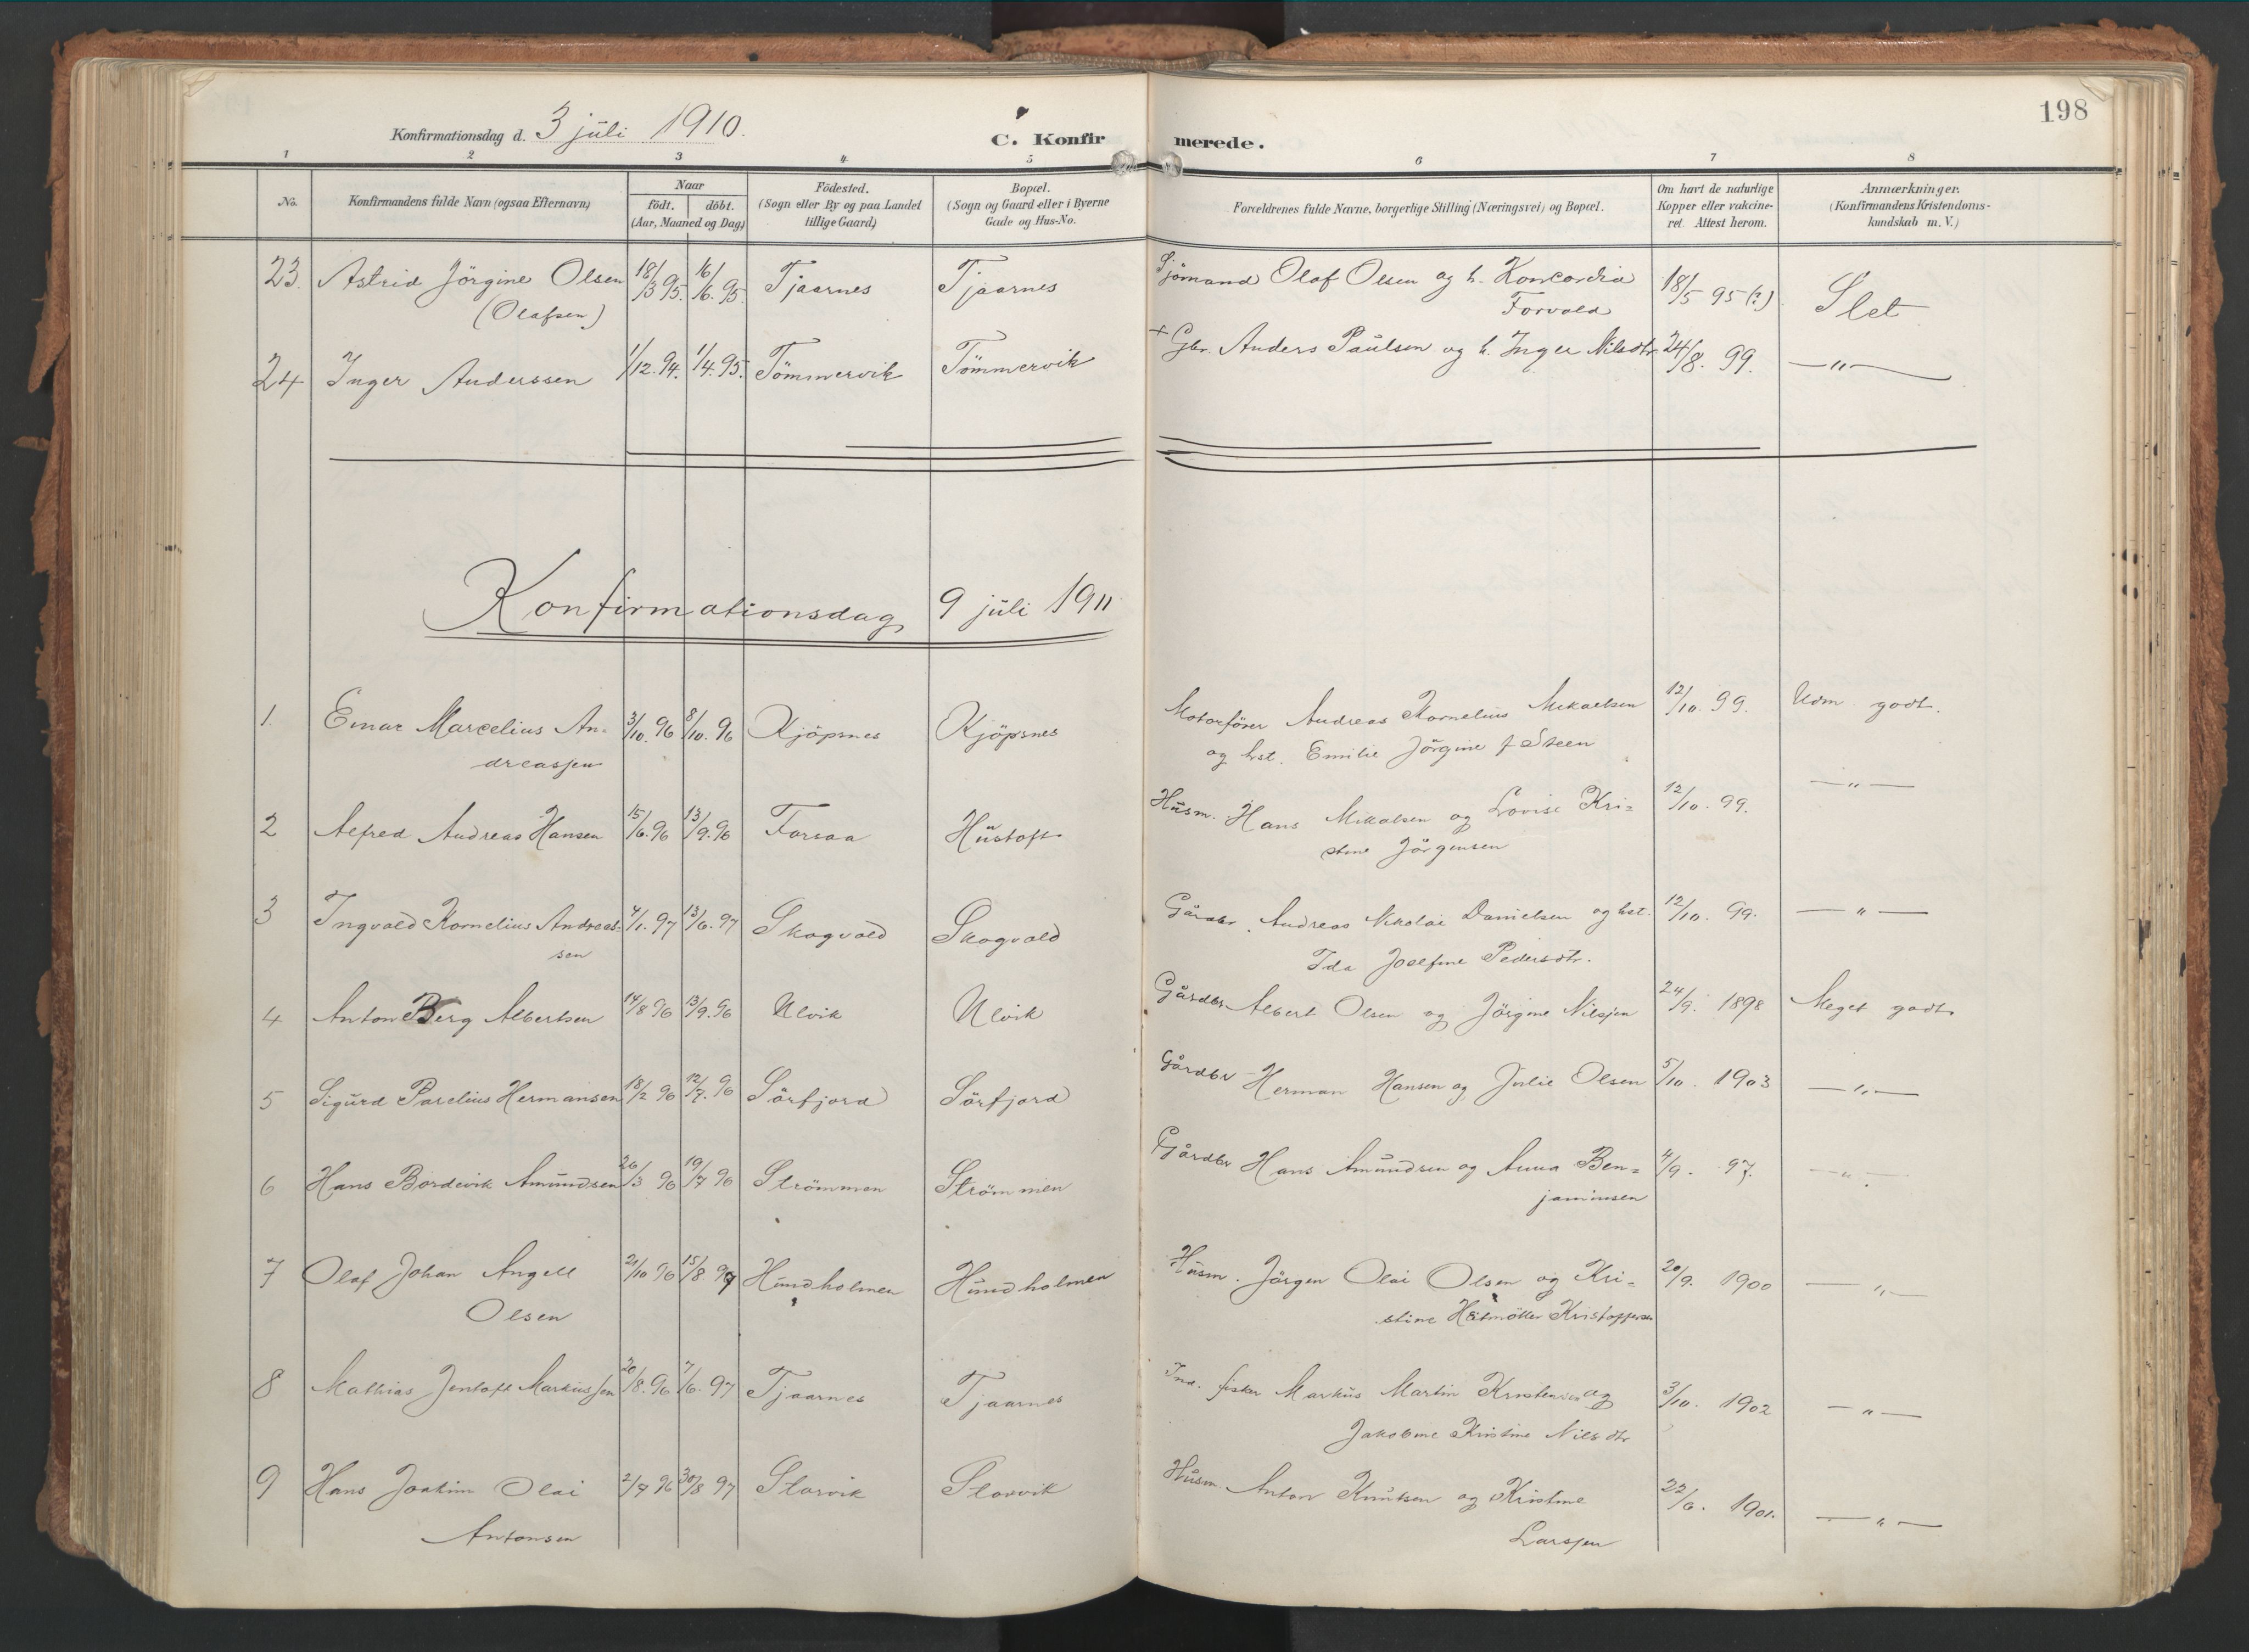 198
Konfirmationsdag d. 3 juli 1910.
C. Konfirmerede.
1 2 3 4 5 6 7 8
No.
Konfirmandens fulde Navn (ogsaa Efternavn)
Naar
födt. döbt.
(Aar, Maaned og Dag)
Födested.
(Sogn eller By og paa Landet
tillige Gaard)
Bopæl.
(Sogn og Gaard eller i Byerne
Gade og Hus-No.
Forældrenes fulde Navne, borgerlige Stilling (Næringsvei) og Bopæl.
Om havt de naturlige
Kopper eller vakcine-
ret. Attest herom.
Anmærkninger.
(Konfirmandens Kristendoms-
kundskab m. V.)
23. Astrid Jörgine Olsen 18/3 95. 16/6. 95. Tjaarnes Tjaarnes Sjömand Olaf Olsen og h. Konkordia 18/5 95 (?) Slet
(Olafsen) Forvald
24 Inger Anderssen 1/12. 94. 1/4. 95. Tömmervik Tömmervik + Gbr. Anders Paulsen og h. Inger Nilsdtr. 24/8. 99. — " —
Konfirmationsdag 9 juli 1911
1 Einar Marcelius An- 3/10. 96 8/10. 96 Kjöpsnes Kjöpsnes Motorförer Andreas Kornelius Mikaelsen 12/10. 99. Udm. godt.
dreassen og hst. Emilie Jörgine f Steen
2 Alfred Andreas Hansen 15/6. 96 13/9. 96 Forsaa Hustoft Husm. Hans Mikalsen og Lovise Kri= 12/10. 99. — " —
stine Jörgensen
3 Ingvald Kornelius Andreas= 4/1. 97 13/6. 97 Skogvold Skogvold Gårdbr. Andreas Nikolai Danielsen og hst. 12/10. 99. — " —
sen Ida Josefine Pedersdtr.
4 Anton Berg Albertsen 14/8 96 13/9. 96 Ulvik Ulvik Gårdbr. Albert Olsen og Jörgine Nilsen 24/9. 1898 Meget godt.
5 Sigurd Parelius Hermansen 18/2 96 12/7. 96 Sörfjord Sörfjord Gårdbr Herman Hansen og Julie Olsen 5/10. 1903 — " —
6 Hans Bordevik Amundsen 26/3 96 19/7 96 Strömmen Strömmen Gårdbr Hans Amundsen og Anna Ben= 4/9. 97. — " —
jaminsen
7 Olaf Johan Angell 21/10 96 15/8 97 Hundholmen Hundholmen Husm. Jörgen Olai Olsen og Kri= 20/9. 1900 — " —
Olsen stine Kristoffersen
8 Mathias Jentoft Markussen 20/8. 96 7/6. 97 Tjaarnes Tjaarnes Ind. fisker Markus Martin Kristensen og 3/10. 1902 — " —
Jakobine Kristine Nilsdtr
9 Hans Joakim Olai 2/7 96 30/8 97 Storvik Storvik Husm. Anton Knutsen og Kristine 22/6. 1901. — " —
Antonsen Larssen